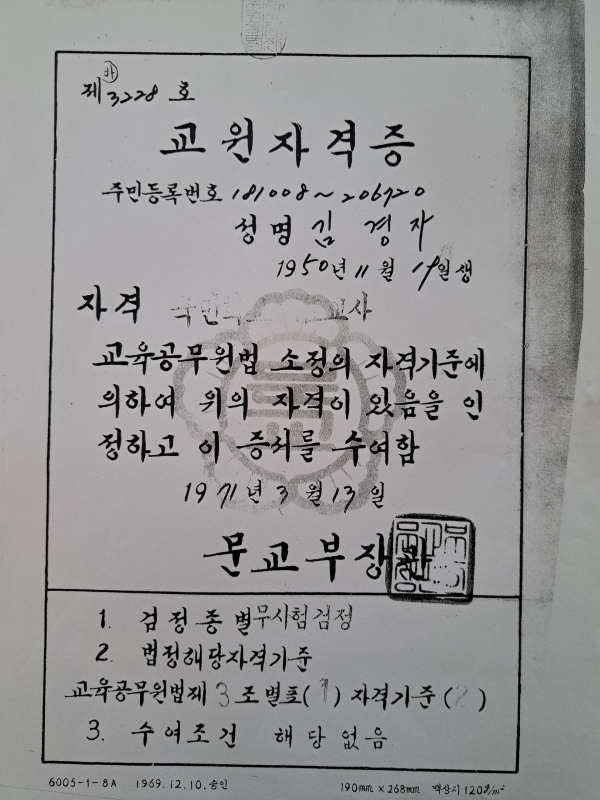 제 ㉳ 3228 호
교원자격증
주민등록번호 181008~206720
성명 김 경 자
1950년 11월 19일생
자격 국민학 교사
교육공무원법 소정의 자격기준에
의하여 위의 자격이 있음을 인
정하고 이 증서를 수여함
1971년 3월 13일
문교부장관
1. 검정종별 무시험검정
2. 법정해당자격기준
교육공무원법제 3 조별표(1) 자격기준(2)
3. 수여조건 해당없음
6005-1-8A 1969.12.10.승인 190mm×268mm 백상지 120g/m²